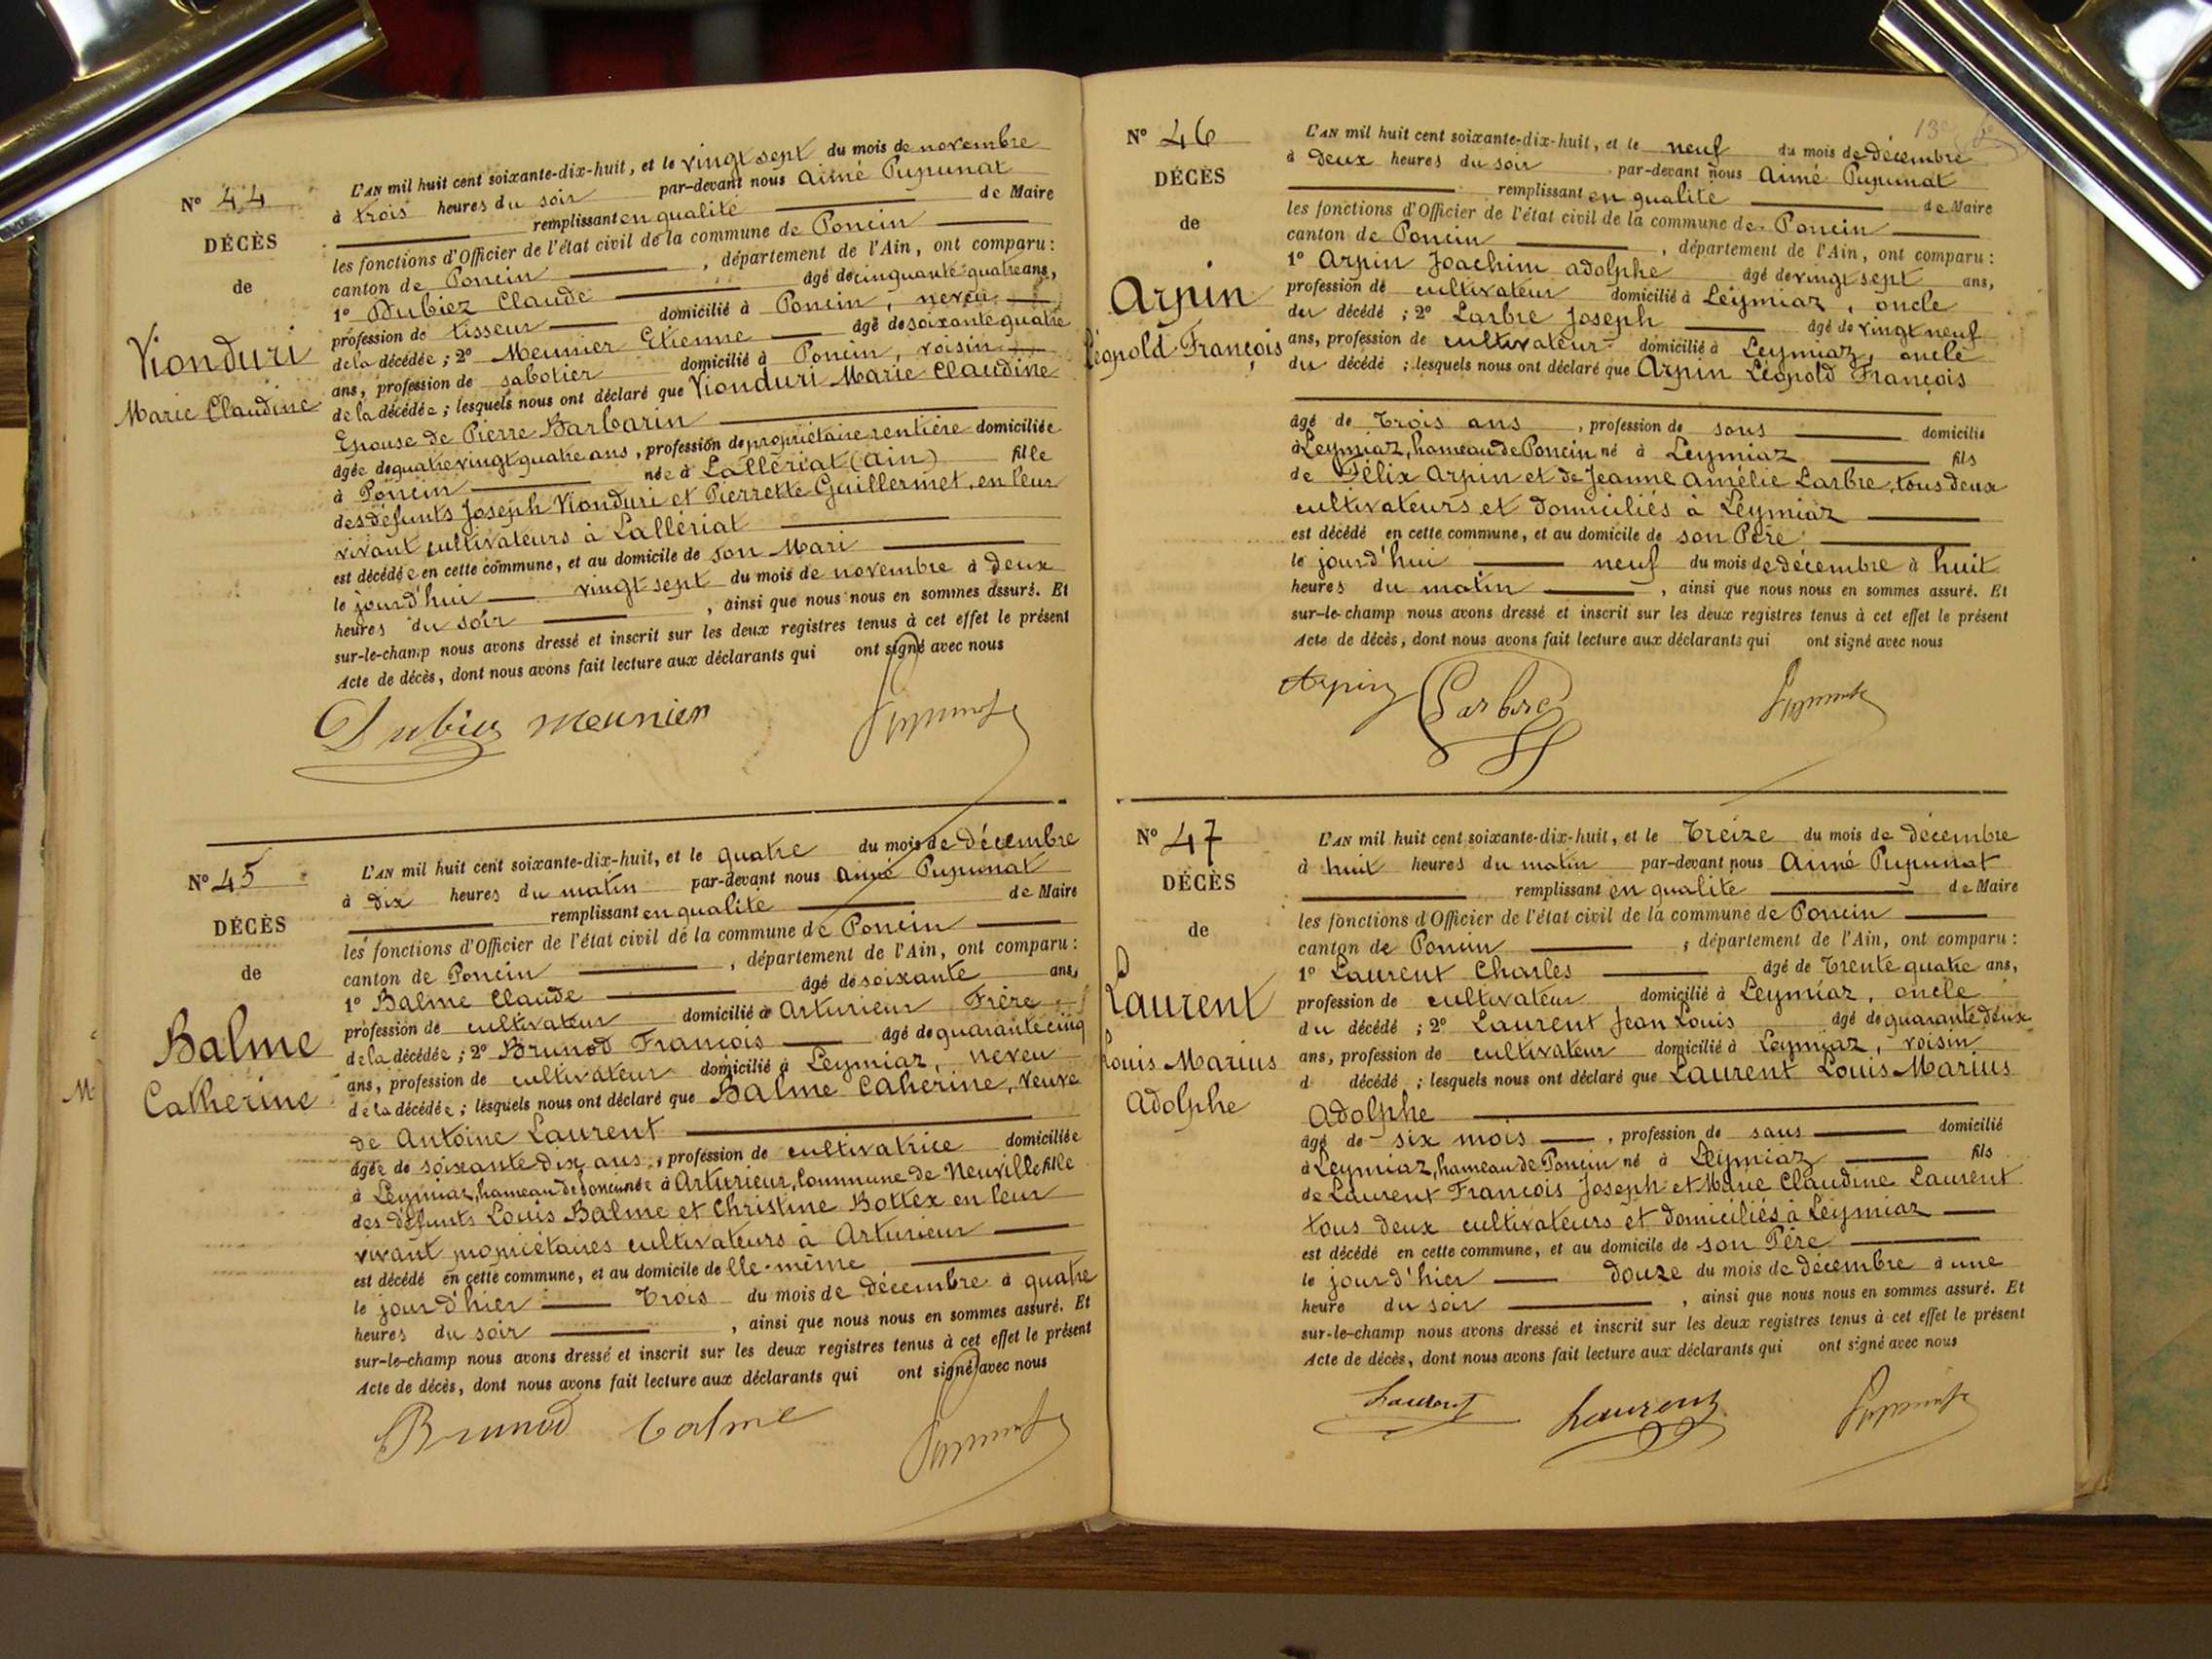 N° 44
DÉCÈS
de
Vionduri
Marie Claudine
L'AN mil huit cent soixante-dix-huit, et le vingt sept du mois de novembre
à trois heures du soir par-devant nous Aimé Pupunat
remplissant en qualité de Maire
les fonctions d'Officier de l'état civil de la commune de Poncin
canton de Poncin, département de l'Ain, ont comparu:
1° Dubiez Claude âgé de cinquante-quatre ans,
profession de tisseur domicilié à Poncin, neveu
de la décédée; 2° Meunier Etienne âgé de soixante quatre
ans, profession de sabotier domicilié à Poncin, voisin
de la décédée; lesquels nous ont déclaré que Vionduri Marie Claudine
Epouse de Pierre Barbarin
âgée de quatre vingt quatre ans, profession de propriétaire rentière domiciliée
à Poncin née à Lallériat (Ain) fille
des défunts Joseph Vionduri et Pierrette Guillermet, en leur
vivant cultivateurs à Lallériat
est décédée en cette commune, et au domicile de son Mari
le jourd'hui vingt sept du mois de novembre à deux
heures du soir, ainsi que nous nous en sommes assuré. Et
sur-le-champ nous avons dressé et inscrit sur les deux registres tenus à cet effet le présent
Acte de décès, dont nous avons fait lecture aux déclarants qui ont signé avec nous
Dubiez Meunier Pupunat
N° 45
DÉCÈS
de
Balme
Catherine
M
L'AN mil huit cent soixante-dix-huit, et le quatre du mois de décembre
à dix heures du matin par-devant nous Aimé Pupunat
remplissant en qualité de Maire
les fonctions d'Officier de l'état civil de la commune de Poncin
canton de Poncin, département de l'Ain, ont comparu:
1° Balme Claude âgé de soixante ans,
profession de cultivateur domicilié à Arturieur Frère
de la décédée; 2° Brunod François âgé de quarante cinq
ans, profession de cultivateur domicilié à Leymiaz, neveu
de la décédée; lesquels nous ont déclaré que Balme Caherine, veuve
de Antoine Laurent
âgée de soixante dix ans, profession de cultivatrice domiciliée
à Leymiaz, hameau de Poncin née à Arturieur, Commune de Neuville fille
des défunts Louis Balme et Christine Bottex en leur
vivant propriétaires cultivateurs à Arturieur
est décédé en cette commune, et au domicile de lle-même
le jour d'hier Trois du mois de décembre à quatre
heures du soir, ainsi que nous nous en sommes assuré. Et
sur-le-champ nous avons dressé et inscrit sur les deux registres tenus à cet effet le présent
Acte de décès, dont nous avons fait lecture aux déclarants qui ont signé avec nous
Brunod Balme Pupunat
N° 46
DÉCÈS
de
Arpin
Léopold François
L'AN mil huit cent soixante-dix-huit, et le neuf du mois de décembre
à deux heures du soir par-devant nous Aimé Pupunat
remplissant en qualité de Maire
les fonctions d'Officier de l'état civil de la commune de Poncin
canton de Poncin, département de l'Ain, ont comparu:
1° Arpin Joachim Adolphe âgé de vingt sept ans,
profession de cultivateur domicilié à Leymiaz, oncle
du décédé; 2° Larbre Joseph âgé de vingt neuf
ans, profession de cultivateur domicilié à Leymiaz, oncle
du décédé; lesquels nous ont déclaré que Arpin Léopold François
âgé de Trois ans, profession de sans domicilié
à Leymiaz, hameau de Poncin né à Leymiaz fils
de Félix Arpin et de Jeanne Amélie Larbre, tous deux
cultivateurs et domiciliés à Leymiaz
est décédé en cette commune, et au domicile de son Père
le jourd'hui neuf du mois de décembre à huit
heures du matin, ainsi que nous nous en sommes assuré. Et
sur-le-champ nous avons dressé et inscrit sur les deux registres tenus à cet effet le présent
Acte de décès, dont nous avons fait lecture aux déclarants qui ont signé avec nous
Arpin Larbre Pupunat
N° 47
DÉCÈS
de
Laurent
Louis Marius
Adolphe
L'AN mil huit cent soixante-dix-huit, et le Treize du mois de décembre
à huit heures du matin par-devant nous Aimé Pupunat
remplissant en qualité de Maire
les fonctions d'Officier de l'état civil de la commune de Poncin
canton de Poncin, département de l'Ain, ont comparu:
1° Laurent Charles âgé de Trente quatre ans,
profession de cultivateur domicilié à Leymiaz, oncle
du décédé; 2° Laurent Jean Louis âgé de quarante deux
ans, profession de cultivateur domicilié à Leymiaz, voisin
d décédé; lesquels nous ont déclaré que Laurent Louis Marius
Adolphe
âgé de six mois, profession de sans domicilié
à Leymiaz, hameau de Poncin né à Leymiaz fils
de Laurent François Joseph et Marie Claudine Laurent
tous deux cultivateurs et domiciliés à Leymiaz
est décédé en cette commune, et au domicile de son Père
le jourd'hier douze du mois de décembre à une
heure du soir, ainsi que nous nous en sommes assuré. Et
sur-le-champ nous avons dressé et inscrit sur les deux registres tenus à cet effet le présent
Acte de décès, dont nous avons fait lecture aux déclarants qui ont signé avec nous
Laurent Laurent Pupunat